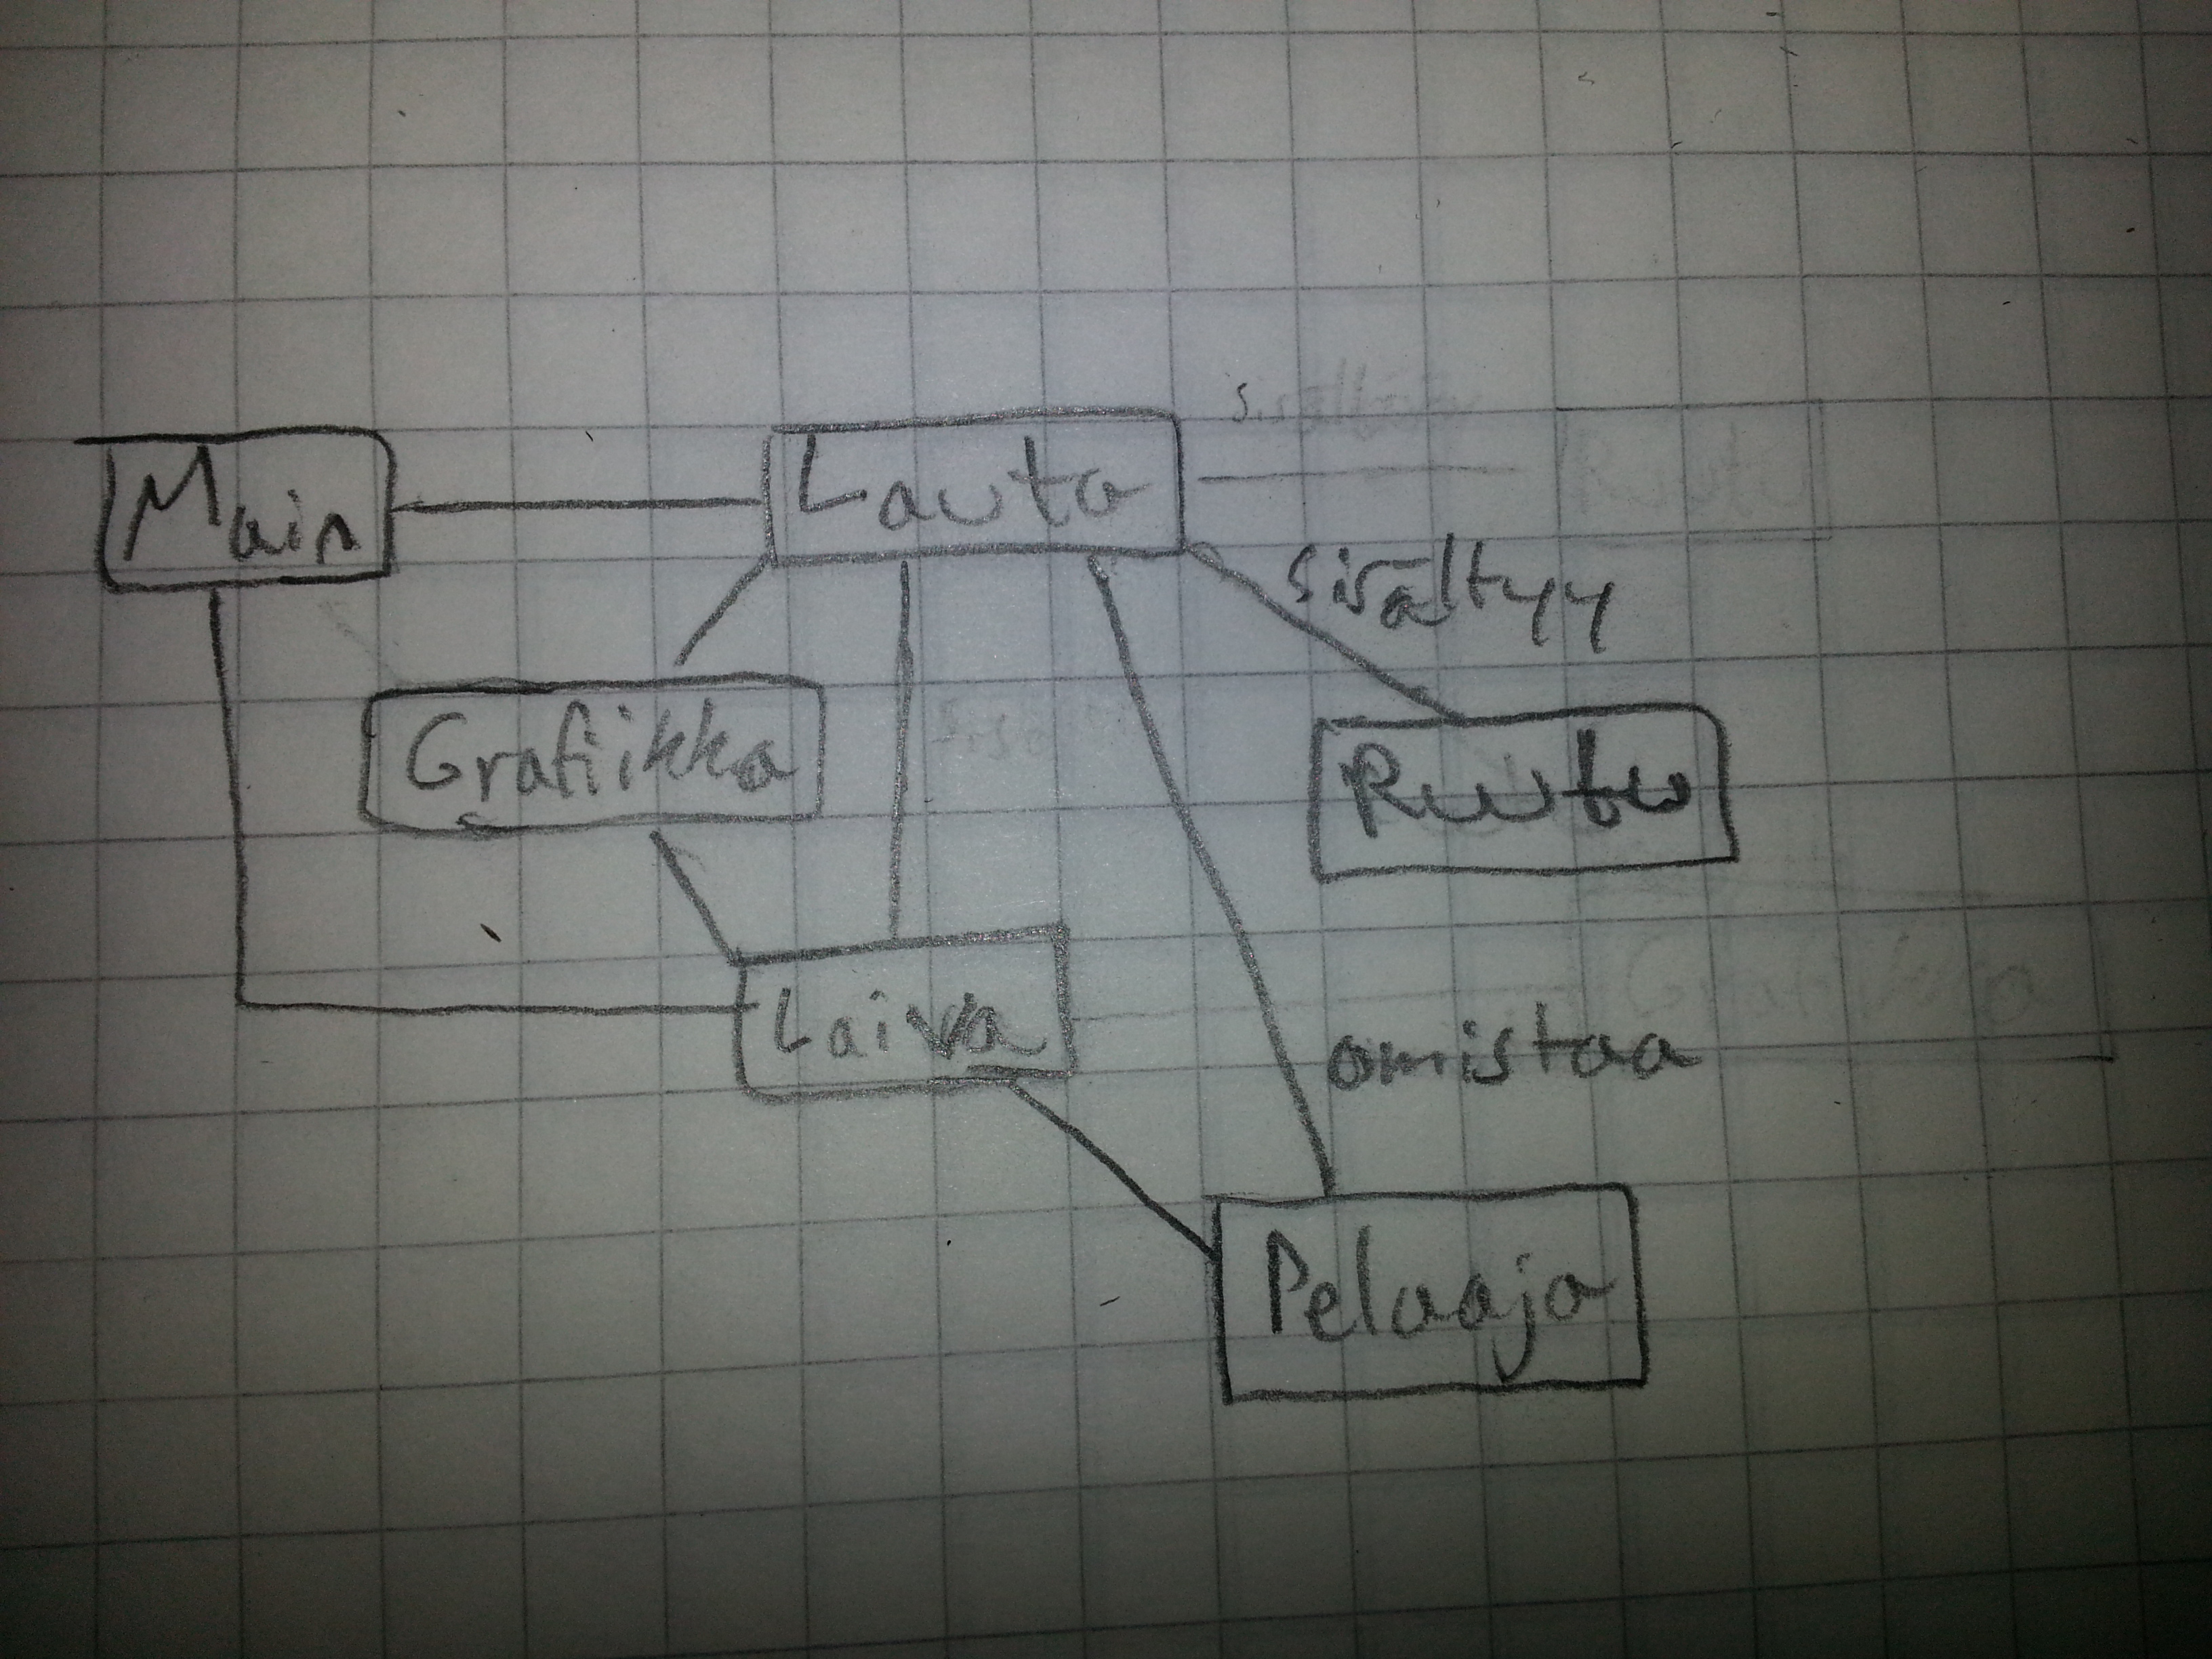 Main
Lauta
sisältyy
Grafiikka
Ruutu
Laiva
omistaa
Pelaaja